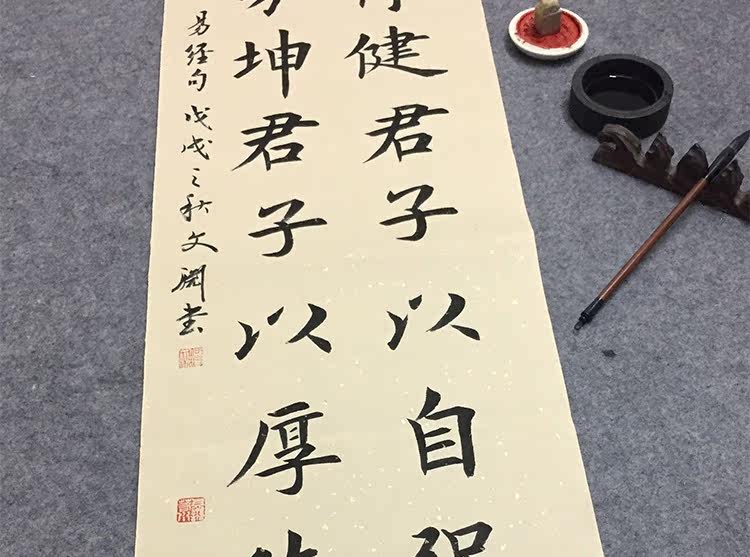 健君子以自
坤君子以厚
易经句 戊戌之秋文